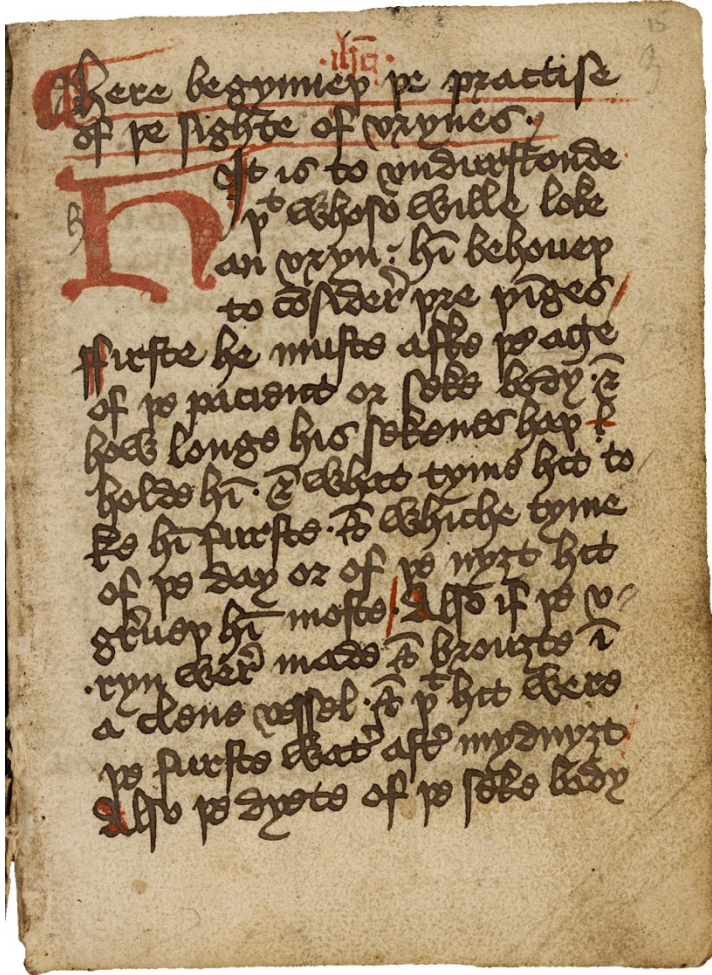 ·ihc·
Here begynneþ þe practise
of þe sighte of vrynes·
Hit is to vndirstonde
þᵗ whoso wille loke
an vryn : hī behoueþ
to cōsider þre þīges /
ffirste he muste aske þe age
of þe pacient or seke body · &
how longe his sekenes haþ I
holde hī · & what tyme hit to
ke hī furste · & whiche tyme
of þe day or of þe nyȝt hit
greueþ hī moste / Also if þe v-
ryn wer̄ made & brouȝte ī
a clene vessel · & þᵗ hit were
þe furste wat̄ aft̄ mydnyȝt
Also þe dyete of þe seke body